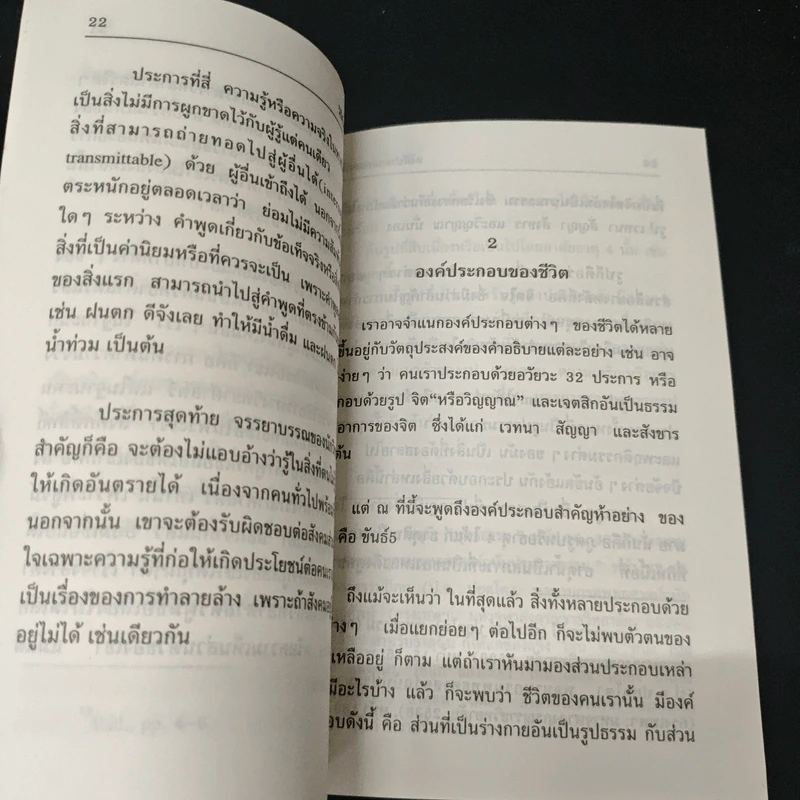 22
ประการที่สี่ ความรู้หรือความจริง
เป็นสิ่งไม่มีการผูกขาดไว้กับผู้รู้แต่คนเดียว
สิ่งที่สามารถถ่ายทอดไปสู่ผู้อื่นได้
transmittable) ด้วย ผู้อื่นเข้าถึงได้
ตระหนักอยู่ตลอดเวลาว่า ย่อมไม่มีความ
ใดๆ ระหว่าง คำพูดเกี่ยวกับข้อเท็จจริงหรือ
สิ่งที่เป็นค่านิยมหรือที่ควรจะเป็น เพราะ
ของสิ่งแรก สามารถนำไปสู่คำพูดที่ตรงข้าม
เช่น ฝนตก ดีจังเลย ทำให้มีน้ำดื่ม และ
น้ำท่วม เป็นต้น
ประการสุดท้าย จรรยาบรรณของ
สำคัญก็คือ จะต้องไม่แอบอ้างว่ารู้ในสิ่งที่
ให้เกิดอันตรายได้ เนื่องจากคนทั่วไป
นอกจากนั้น เขาจะต้องรับผิดชอบต่อสังคม
ใจเฉพาะความรู้ที่ก่อให้เกิดประโยชน์ต่อ
เป็นเรื่องของการทำลายล้าง เพราะถ้าสังคม
อยู่ไม่ได้ เช่นเดียวกัน
2
องค์ประกอบของชีวิต
เราอาจจำแนกองค์ประกอบต่างๆ ของชีวิตได้หลาย
ขึ้นอยู่กับวัตถุประสงค์ของคำอธิบายแต่ละอย่าง เช่น อาจ
ง่ายๆ ว่า คนเราประกอบด้วยอวัยวะ 32 ประการ หรือ
กอบด้วยรูป จิต“หรือวิญญาณ” และเจตสิกอันเป็นธรรม
อาการของจิต ซึ่งได้แก่ เวทนา สัญญา และสังขาร
ต้น
แต่ ณ ที่นี้จะพูดถึงองค์ประกอบสำคัญห้าอย่าง ของ
คือ ขันธ์5
ถึงแม้จะเห็นว่า ในที่สุดแล้ว สิ่งทั้งหลายประกอบด้วย
างๆ เมื่อแยกย่อยๆ ต่อไปอีก ก็จะไม่พบตัวตนของ
เหลืออยู่ ก็ตาม แต่ถ้าเราหันมามองส่วนประกอบเหล่า
มีอะไรบ้าง แล้ว ก็จะพบว่า ชีวิตของคนเรานั้น มีองค์
อบดังนี้ คือ ส่วนที่เป็นร่างกายอันเป็นรูปธรรม กับส่วน